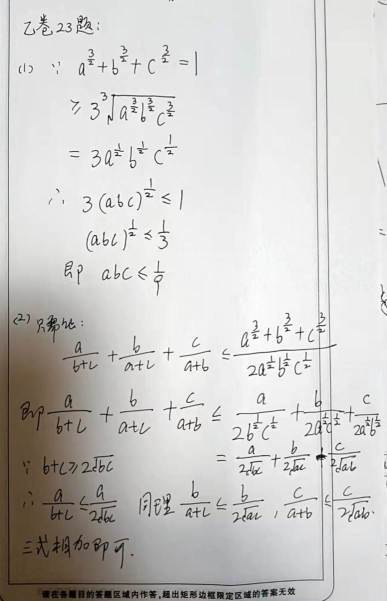 乙卷23题:
(1) ∵ a^{3/2}+b^{3/2}+c^{3/2}=1
≥ 3∛(a^{3/2}b^{3/2}c^{3/2})
= 3a^{1/2}b^{1/2}c^{1/2}
∴ 3(abc)^{1/2} ≤ 1
(abc)^{1/2} ≤ 1/3
即 abc ≤ 1/9
(2) 只需证:
a/(b+c) + b/(a+c) + c/(a+b) ≤ (a^{3/2}+b^{3/2}+c^{3/2})/(2a^{1/2}b^{1/2}c^{1/2})
即 a/(b+c) + b/(a+c) + c/(a+b) ≤ a/(2b^{1/2}c^{1/2}) + b/(2a^{1/2}c^{1/2}) + c/(2a^{1/2}b^{1/2})
= a/(2√bc) + b/(2√ac) + c/(2√ab)
∵ b+c ≥ 2√bc
∴ a/(b+c) ≤ a/(2√bc) 同理 b/(a+c) ≤ b/(2√ac), c/(a+b) ≤ c/(2√ab).
三式相加即可.
请在各题目的答题区域内作答,超出矩形边框限定区域的答案无效